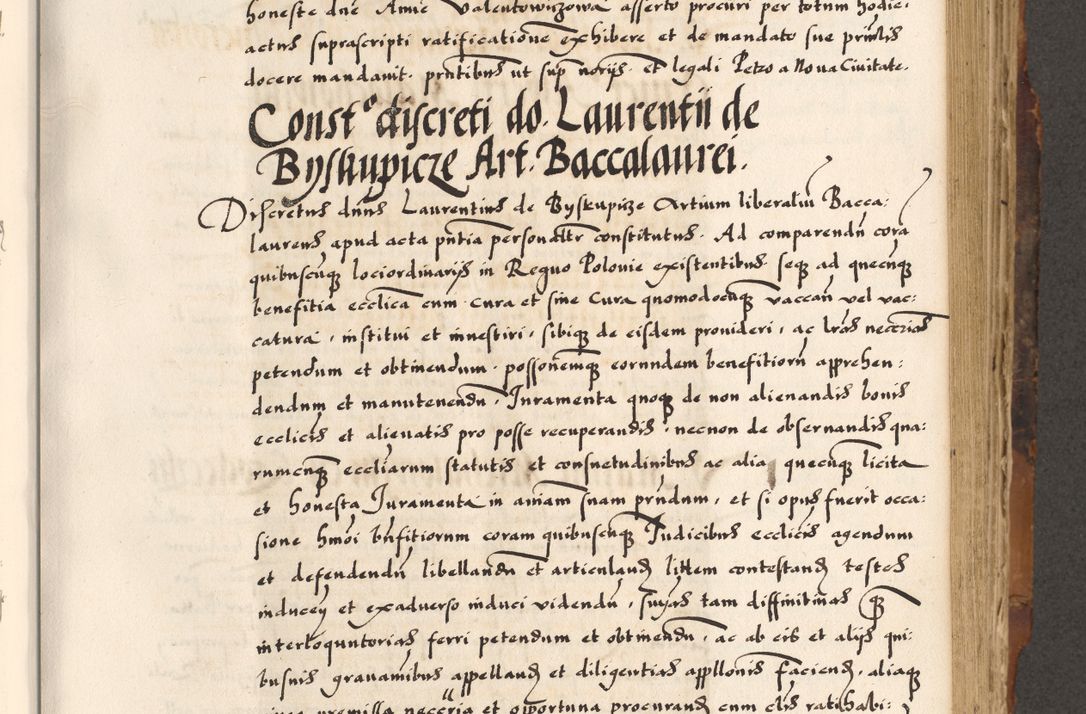 honeste dne Anne Valentowiczowa asserto procuri per totum hodie:
actus suprascripti ratificatione exhibere et de mandato sue prin͞lis
docere mandavit. pn̄tibus ut sup norijs. et legali Petro a Nova Civitate.
Constᵒ discreti do. Laurentii de
Byskupicze Art. Baccalaurei.
Discretus dn̄us Laurentius de Byskupicze Artium liberaliū Bacca:
laureus apud acta pn̄tia personaltr constitutus. Ad comparendū corā
quibuscūqꝫ lociordinarijs in Regno Polonie existentibus seqꝫ ad quecūqꝫ
benefitia ecclīca cum cura et sine Cura quomodocūqꝫ vaccan̄ vel vac:
catura, institui et investiri, sibiqꝫ de eisdem provideri, ac lr̄as necc̄rias
petendum et obtinendum. possōnemqꝫ eorundem benefitiorū apprehen:
dendum et manutenendū, Juramenta quoqꝫ de non alienandis bonis
ecclīcis et alienatis pro posse recuperandis, necnon de observandis qua:
rumcūqꝫ eccliarum statutis et consuetudinibus ac alia quecūqꝫ licita
et honesta Juramenta in aīam suam pn̄dum, et si opus fuerit occa:
sione hmōi bn̄fitiorum coram quibuscūqꝫ Judicibus ecclīcis agendum
et defendendū libellandū et articuland litem contestand testes
inducen̄ et exadverso induci videndū, sn̄ias tam diffinitivas qꝫ
interloquutorias ferri petendum et obtinendū, ac ab eis et alijs qui:
busvis gravaminibus appelland et diligentias appllonis faciend, aliaqꝫ
premissa necc̄ria et opportuna procurand cum clis ratihabi: